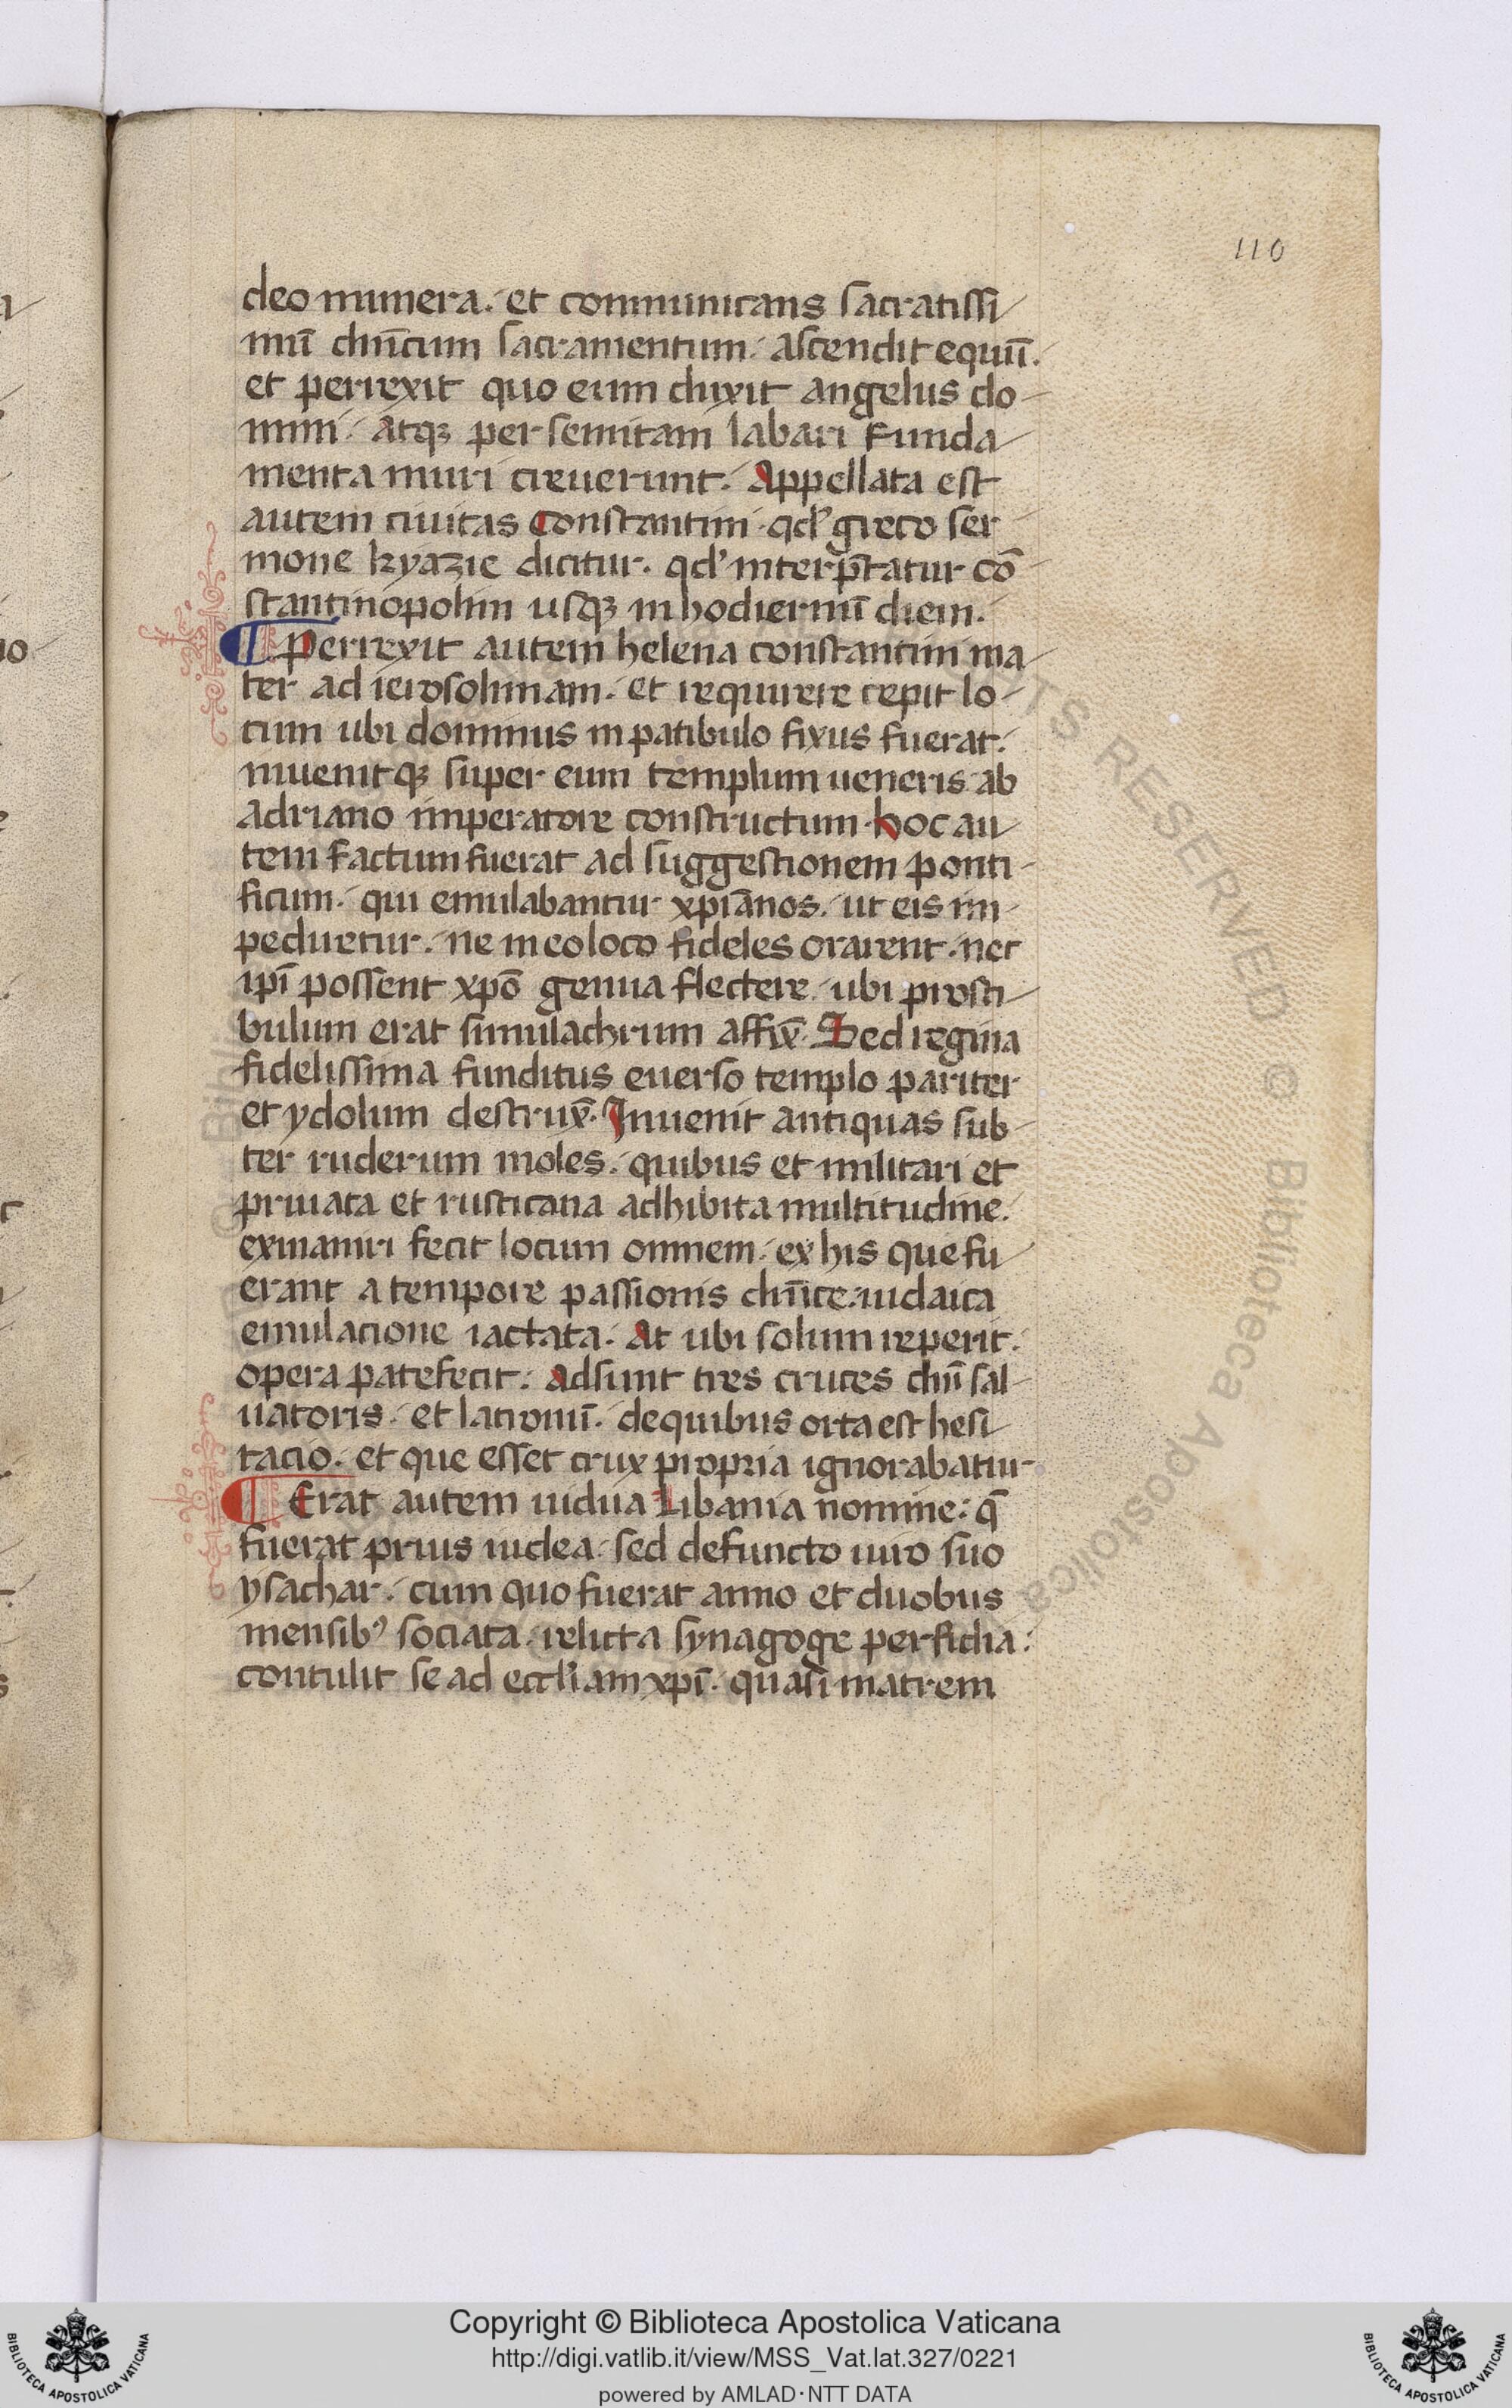 110
deo munera. et communicans sacratissi
mū dn̄icum sacramentum. ascendit equū.
et perrexit quo eum duxit angelus do
mini. atqꝫ per semitam labari funda
menta muri creuerunt. Appellata est
autem ciuitas Constantini. qd' greco ser
mone kyazie dicitur. qd' interp̄tatur cō
stantinopolim usqꝫ in hodiernū diem.
¶ Perrexit autem helena constantini ma
ter ad ierosolimam. et requirere cepit lo
cum ubi dominus in patibulo fixus fuerat.
inuenitqꝫ super eum templum ueneris ab
adriano imperatore constructum. hoc au
tem factum fuerat ad suggestionem ponti
ficum. qui emulabantur xp̄ianos. ut eis im
pediretur. ne in eo loco fideles orarent. nec
ip̄i possent xp̄o genua flectere. ubi prosti
bulum erat simulachrum affix̄. Sed regina
fidelissima funditus euerso templo pariter
et ydolum destrux̄. Inuenit antiquas sub
ter ruderum moles. quibus et militari et
priuata et rusticana adhibita multitudine.
exinaniri fecit locum omnem. ex his que fu
erant a tempore passionis dn̄ice. iudaica
emulacione iactata. At ubi solum reperit.
opera patefecit. Adsunt tres cruces dn̄i sal
uatoris. et latronū. de quibus orta est hesi
tacio. et que esset crux propria ignorabatur
¶ Erat autem uidua Libania nomine. q̄
fuerat prius iudea. sed defuncto uiro suo
ysachar. cum quo fuerat anno et duobus
mensibꝰ sociata. relicta synagoge perfidia.
contulit se ad eccl'iam xp̄i. quasi matrem
Copyright © Biblioteca Apostolica Vaticana
http://digi.vatlib.it/view/MSS_Vat.lat.327/0221
powered by AMLAD·NTT DATA